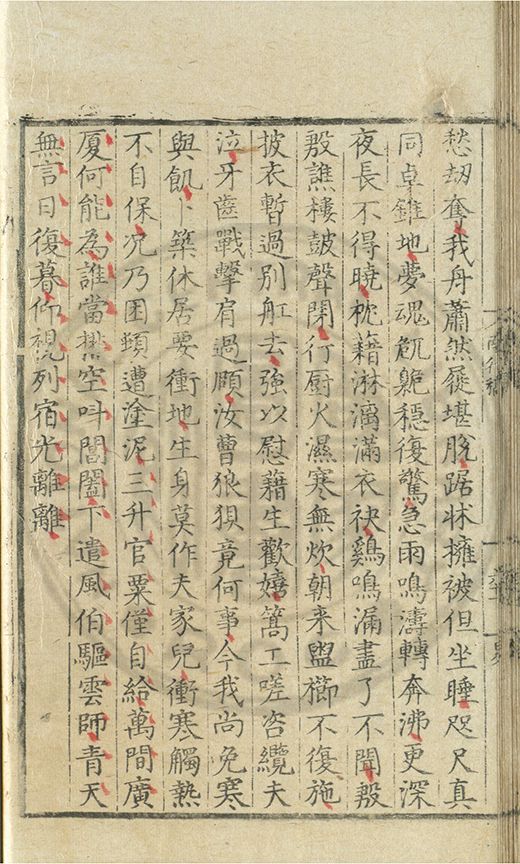 愁刼奪我舟蕭然屣堪脫踞牀擁被但坐睡咫尺真
同卓錐地夢魂卼臲穩復驚急雨鳴濤轉奔沸更深
夜長不得曉枕藉淋漓滿衣袂鷄鳴漏盡了不聞殷
殷譙樓皷聲閙行厨火濕寒無炊朝來盥櫛不復施
披衣暫過別舡去強以慰藉生歡嬉篙工嗟咨纜夫
泣牙齒戰擊肩過頤汝曹狼狽竟何事今我尚免寒
與飢卜築休居要衝地生身莫作夫家兒衝寒觸熱
不自保况乃困頓遭塗泥三升官粟僅自給萬間廣
厦何能為誰當排空叫閶闔下遣風伯驅雲師青天
無言日復暮仰視列宿光離離